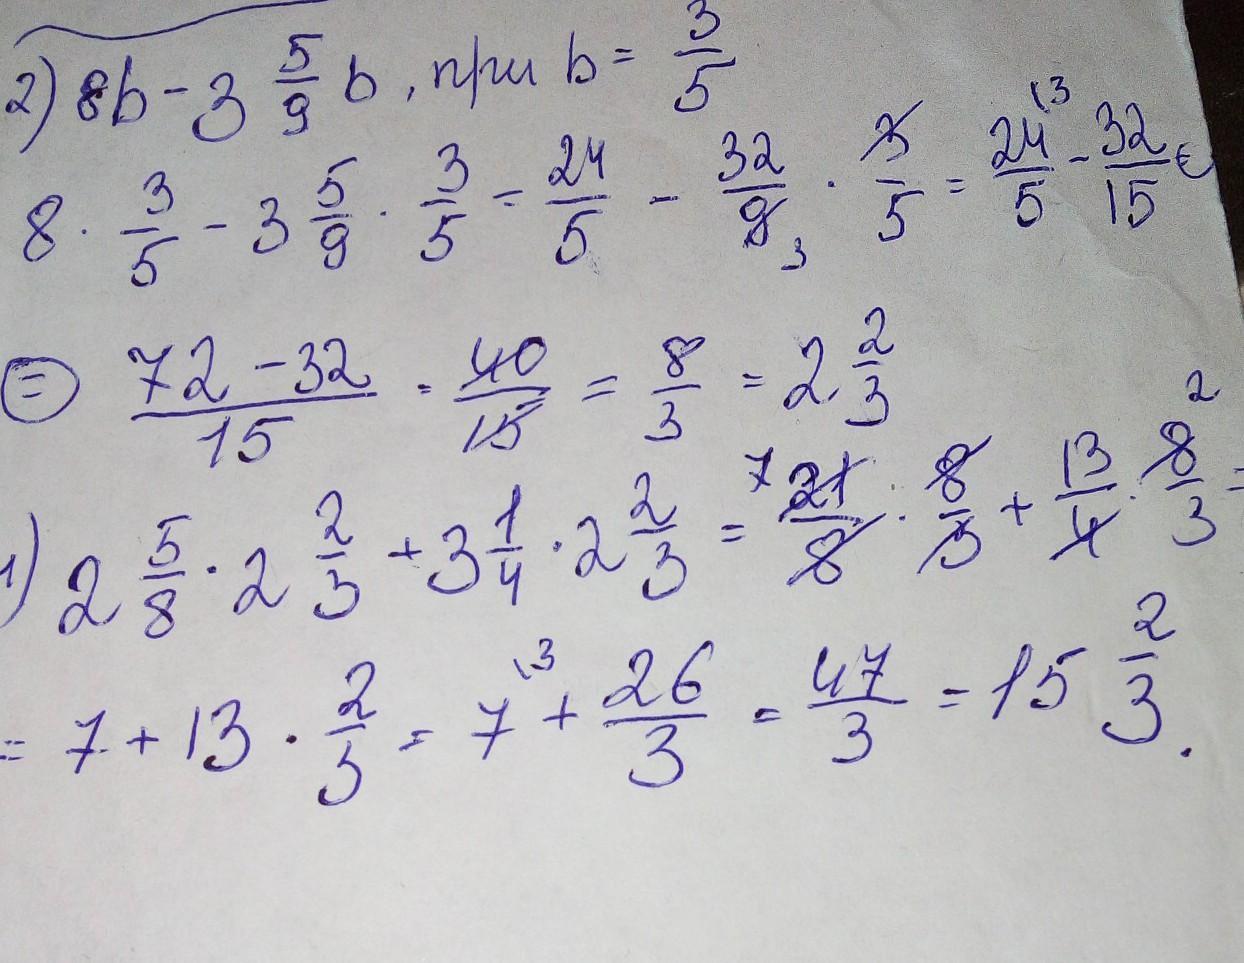 2) 8b - 3 5/9 b, при b = 3/5
8 · 3/5 - 3 5/9 · 3/5 = 24/5 - 32/9 3 · 3/5 = 24/5 \3 - 32/15 =
= 72 - 32/15 = 40/15 = 8/3 = 2 2/3
1) 2 5/8 · 2 2/3 + 3 1/4 · 2 2/3 = 7 21/8 · 8/3 + 13/4 · 8/3 2 =
= 7 + 13 · 2/3 = 7 \3 + 26/3 = 47/3 = 15 2/3.